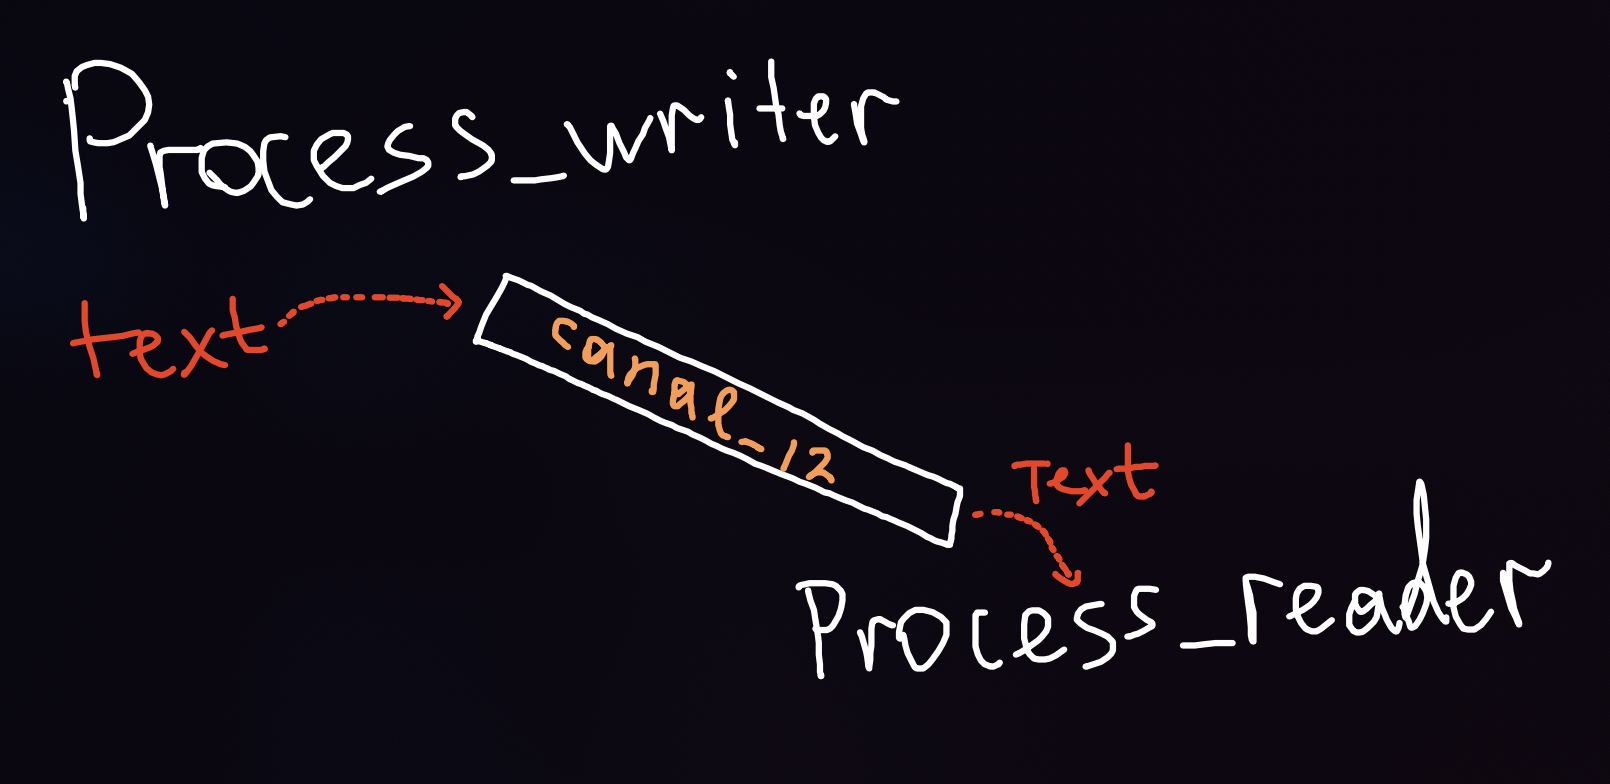 Process_writer
text
canal_12
Text
Process_reader